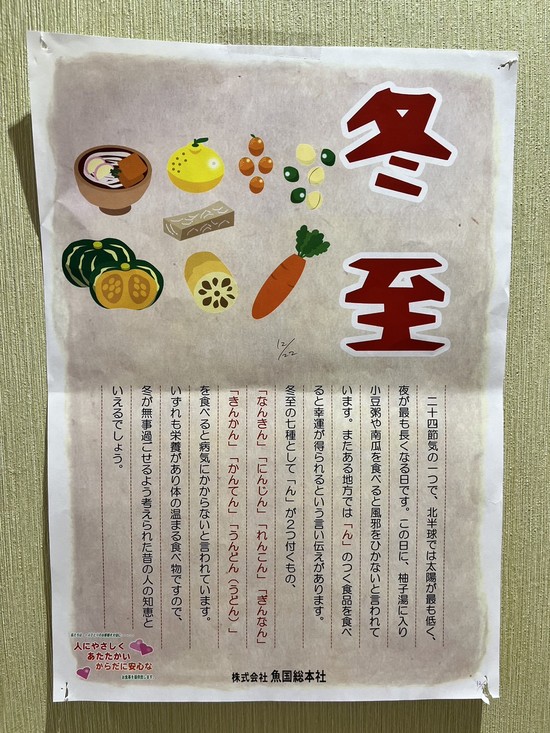 冬至
12/22
二十四節気の一つで、北半球では太陽が最も低く、
夜が最も長くなる日です。この日に、柚子湯に入り
小豆粥や南瓜を食べると風邪をひかないと言われて
います。またある地方では「ん」のつく食品を食べ
ると幸運が得られるという言い伝えがあります。
冬至の七種として「ん」が2つ付くもの、
「なんきん」「にんじん」「れんこん」「ぎんなん」
「きんかん」「かんてん」「うんどん（うどん）」
を食べると病気にかからないと言われています。
いずれも栄養があり体の温まる食べ物ですので、
冬が無事過ごせるよう考えられた昔の人の知恵と
いえるでしょう。
人にやさしく
あたたかい
からだに安心な
お食事を提供致します
株式会社 魚国総本社